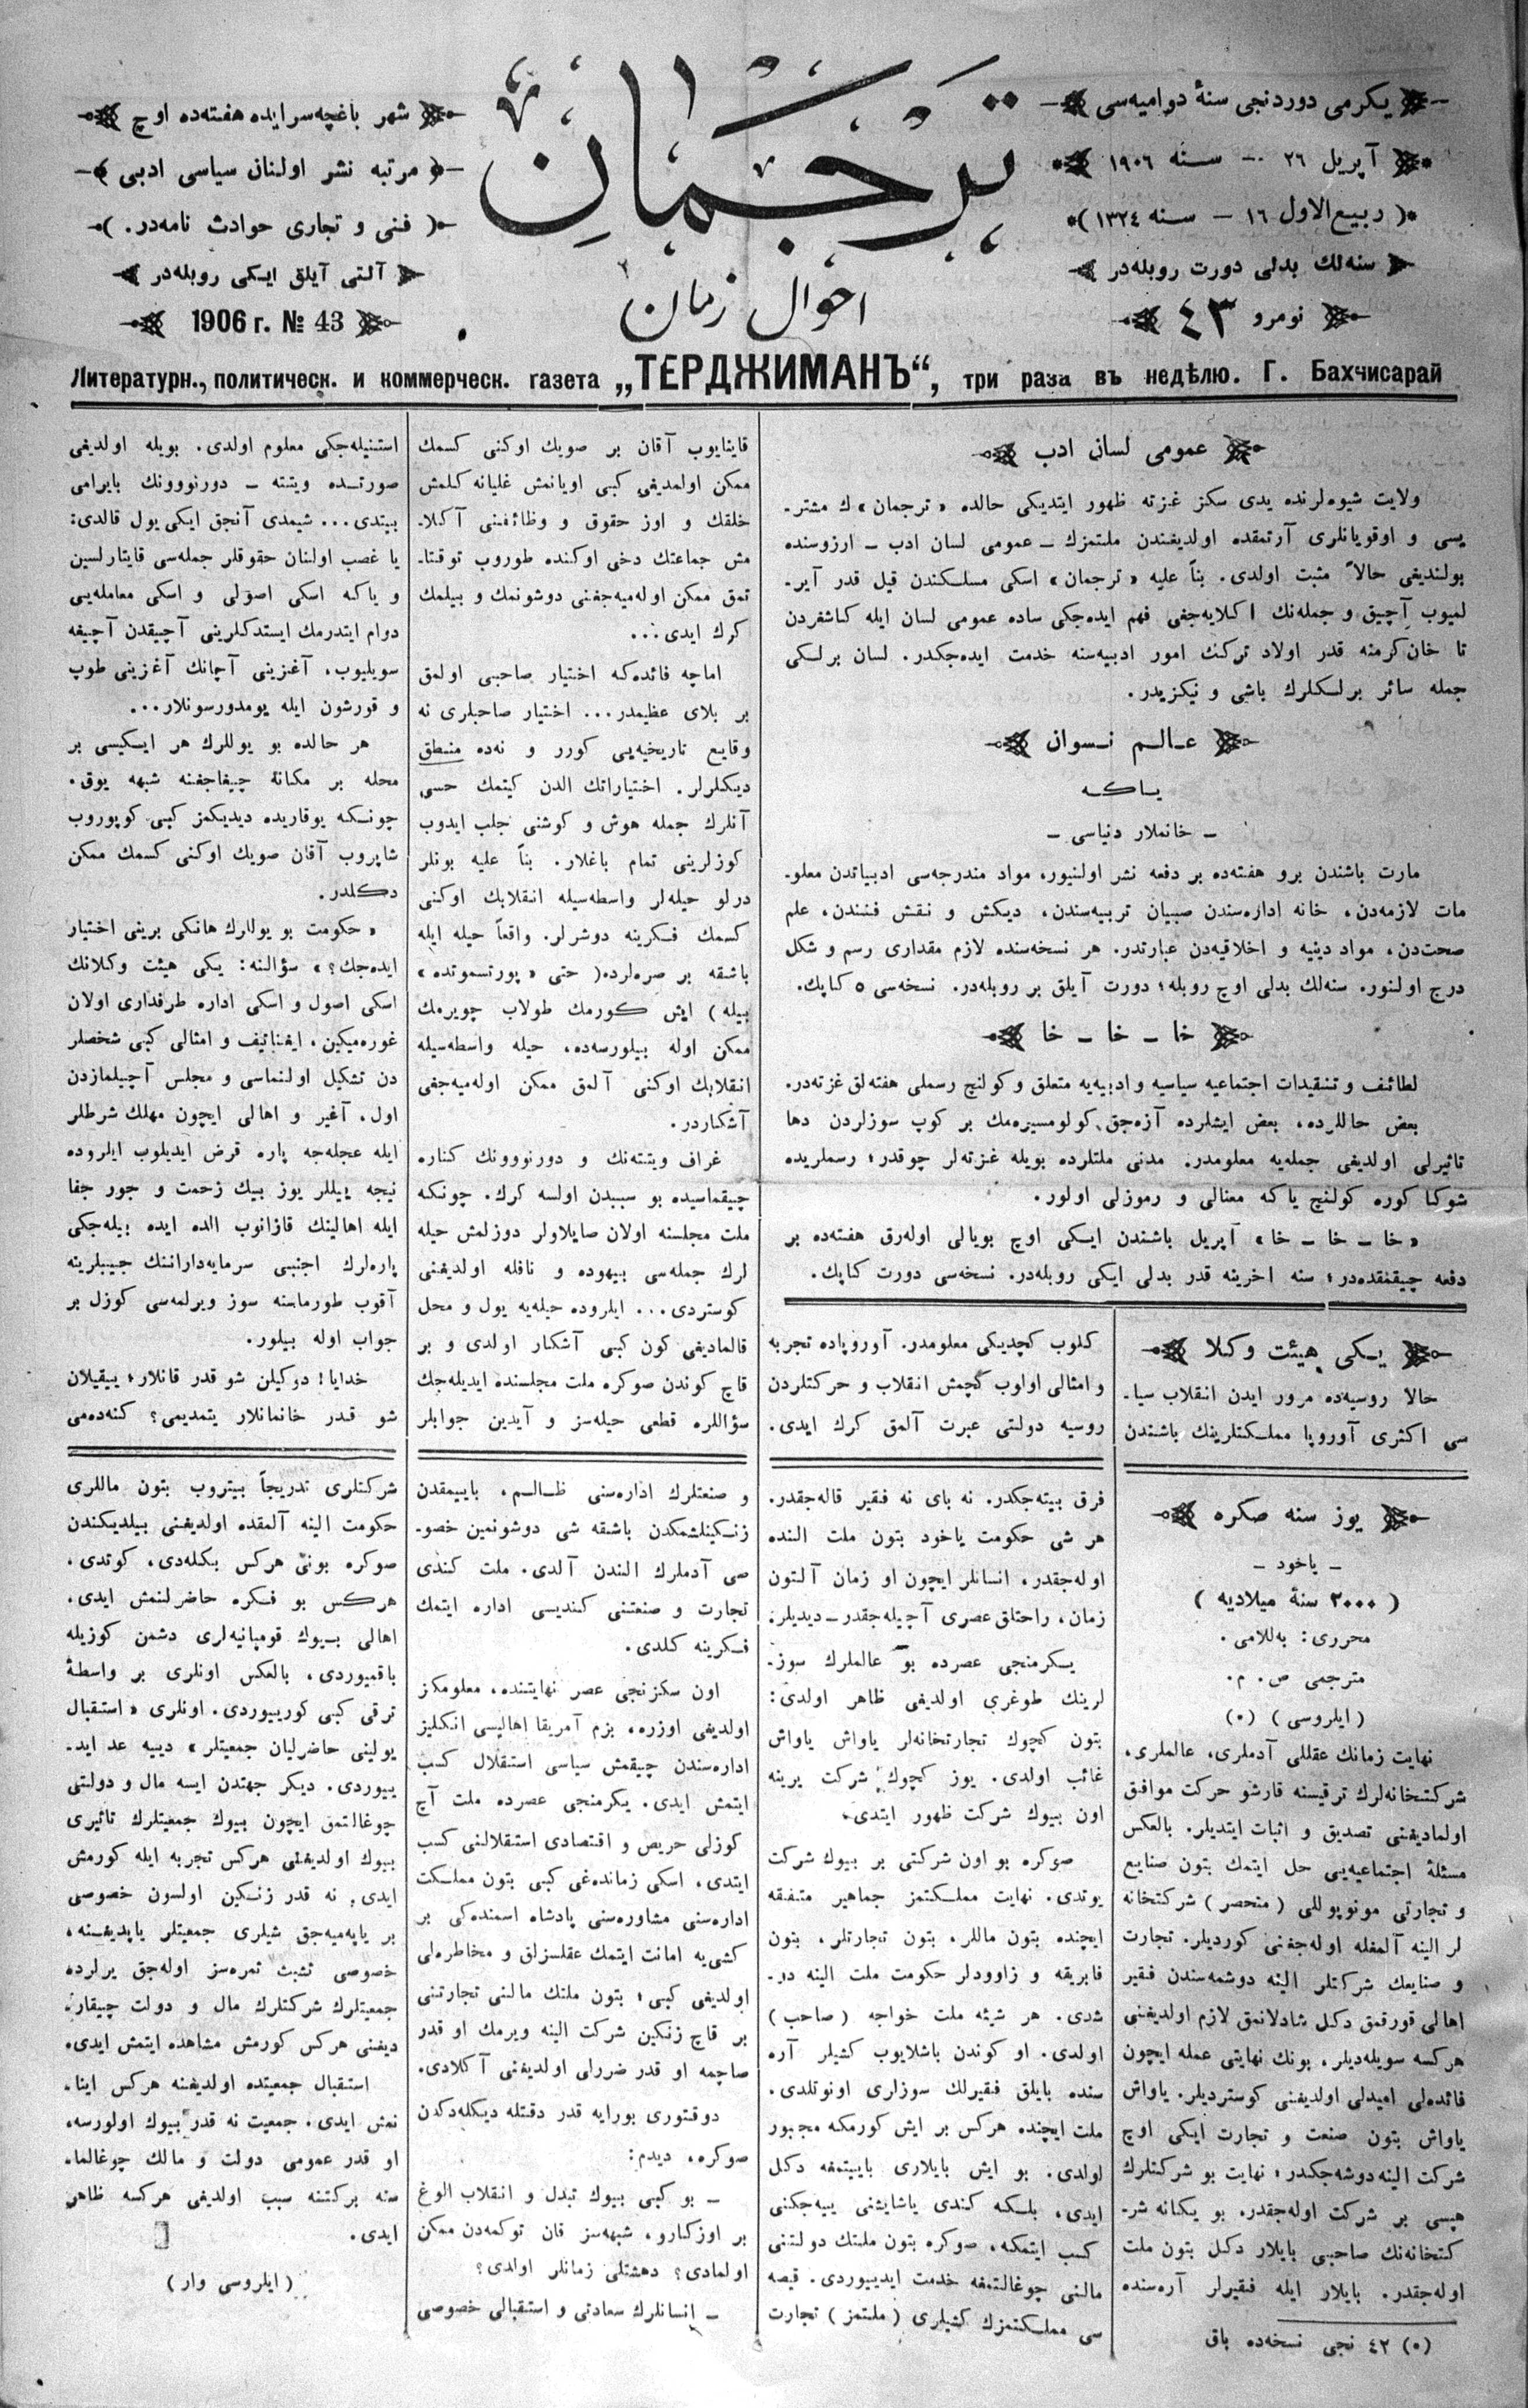 یكرمی دوردنجی سنهٔ دوامیه‌سی
آپریل ٢٦ — سـنه ١٩٠٦
( ربیع‌الاول ١٦ — سـنه ١٣٢٤ )
سنه‌لك بدلی دورت روبله‌در
نومرو ٤٣
ترجمان
احوال زمان
شهر باغچه‌سرایده هفته‌ده اوچ
مرتبه نشر اولنان سیاسی ادبی
( فنی و تجاری حوادث نامه‌در. )
آلتی آیلق ایكی روبله‌در
1906 г. № 43
Литературн., политическ. и коммерческ. газета „ТЕРДЖИМАНЪ“, три раза въ недѣлю. Г. Бахчисарай
عمومی لسان ادب
ولایت شیوه‌لرنده یدی سكز غزته ظهور ایتدیكی حالده « ترجمان » ك مشتر-
یسی و اوقویانلری آرتمقده اولدیغندن ملتمزك — عمومی لسان ادب — ارزوسنده
بولندیغی حالاً مثبت اولدی. بناً علیه « ترجمان » اسكی مسلـكندن قیل قدر آیر-
لمیوب آچیق و جمله‌نك اكلایه‌جغی فهم ایده‌جكی ساده عمومی لسان ایله كاشغردن
تا خان كرمنه قدر اولاد ترك‌ك امور ادبیه‌سنه خدمت ایده‌جكدر. لسان برلـكی
جمله سائر برلـكلرك باشی و نیكزیدر.
عـالـم نـسوان
یـاكـه
— خانملار دنیاسی —
مارت باشندن برو هفته‌ده بر دفعه نشر اولنیور، مواد مندرجه‌سی ادبیاتدن معلو-
مات لازمه‌دن، خانه اداره‌سندن صبیان تربیه‌سندن، دیكش و نقش فنندن، علم
صحت‌دن، مواد دینیه و اخلاقیه‌دن عبارتدر. هر نسخه‌سنده لازم مقداری رسم و شكل
درج اولنور. سنه‌لك بدلی اوچ روبله؛ دورت آیلق بر روبله‌در. نسخه‌سی ٥ كاپك.
خا — خا — خا
لطائف و تنقیدات اجتماعیه سیاسیه و ادبیه‌یه متعلق و كولنچ رسملی هفته‌لق غزته‌در.
بعض حاللرده، بعض ایشلرده آزه‌جق كولومسیره‌مك بر كوپ سوزلردن دها
تاثیرلی اولدیغی جمله‌یه معلومدر. مدنی ملتلرده بویله غزته‌لر چوقدر؛ رسملریده
شوكا كوره كولنچ یاكه معنالی و رموزلی اولور.
« خا — خا — خا » آپریل باشندن ایـكی اوچ بویالی اوله‌رق هفته‌ده بر
دفعه چیقنقده‌در؛ سنه اخرینه قدر بدلی ایكی روبله‌در. نسخه‌سی دورت كاپك.
یـكی هیئت وكلا
حالا روسیه‌ده مرور ایدن انقلاب سیا-
سی اكثری آوروپا مملـكتلرینك باشندن
كلوب كچدیكی معلومدر. آوروپاده تجربه
و امثالی اولوب كچمش انقلاب و حركتلردن
روسیه دولتی عبرت آلمق كرك ایدی.
قاینایوب آقان بر صویك اوكنی كسمك
ممكن اولمدیغی كبی اویانمش غلیانه كلمش
خلقك و اوز حقوق و وظائفنی آكلا-
مش جماعتك دخی اوكنده طوروب توقتا-
تمق ممكن اوله‌میه‌جغنی دوشونمك و بیلمك
كرك ایدی...
اماچه فائده‌كه اختیار صاحبی اولمق
بر بلای عظیمدر... اختیار صاحبلری نه
وقایع تاریخیه‌یی كورر و نه‌ده منطق
دیكلرلر. اختیاراتك الدن كیتمك حسی
آنلرك جمله هوش و كوشنی جلب ایدوب
كوزلرینی تمام باغلار. بناً علیه بونلر
درلو حیله‌لر واسطه‌سیله انقلابك اوكنی
كسمك فـكرینه دوشرلر. واقعاً حیله ایله
باشقه بر صره‌لرده( حتی « پورتسموتده »
بیله ) ایش كورمك طولاب چویرمك
ممكن اوله بیلورسه‌ده، حیله واسطه‌سیله
انقلابك اوكنی آلمق ممكن اوله‌میه‌جغی
آشكاردر.
غراف ویتته‌نك و دورنووونك كناره
چیقماسیده بو سببدن اولسه كرك. چونكه
ملت مجلسنه اولان صایلاولر دوزلمش حیله
لرك جمله‌سی بیهوده و نافله اولدیغنی
كوستردی... ایلروده حیله‌یه یول و محل
قالمادیغی كون كبی آشكار اولدی و بر
قاچ كوندن صوكره ملت مجلسنده ایدیله‌جك
سؤاللره قطعی حیله‌سز و آیدین جوابلر
استنیله‌جكی معلوم اولدی. بویله اولدیغی
صورتـده ویتته — دورنووونك بایرامی
بیتدی... شیمدی آنجق ایكی یول قالدی:
یا غصب اولنان حقوقلر جمله‌سی قایتارلسین
و یاكه اسكی اصولی و اسكی معامله‌یی
دوام ایتدرمك ایستدكلرینی آچیقدن آچیغه
سویلیوب، آغزینی آچانك آغزینی طوپ
و قورشون ایله یومدورسونلار...
هر حالده بو یوللرك هر ایـكیسی بر
محله بر مكانهٔ چیغاجغنه شبهه یوق.
چونـكه یوقاریده دیدیكمز كبی كوپوروب
شاپروب آقان صویك اوكنی كسمك ممكن
دكلدر.
« حكومت بو یوللرك هانكی برینی اختیار
ایده‌جك؟ » سؤالنه: یكی هیئت وكلانك
اسكی اصول و اسكی اداره طرفداری اولان
غوره‌میكین، ایغناتیف و امثالی كبی شخصلر
دن تشكیل اولنماسی و مجلس آچیلمازدن
اول، آغیر و اهالی ایچون مهلك شرطلر
ایله عجله‌جه پاره قرض ایدیلوب ایلروده
نیجه ییللر یوز بیك زحمت و جور جفا
ایله اهالینك قازانوب الده ایده بیله‌جكی
پاره‌لرك اجنبی سرمایه‌دارانتك جیبلرینه
آقوب طورماسنه سوز ویرلمه‌سی كوزل بر
جواب اوله بیلور.
خدایا! دوكیلن شو قدر قانلار؛ ییقیلان
شو قـدر خانمانلار یتمدیمی؟ كنه‌ده‌می
یوز سنه صكره
— یاخود —
( ٢٠٠٠ سنهٔ میلادیه )
محرری: به‌للامی.
مترجمی ص. م.
( ایلروسی ) (٥)
نهایت زمانك عقللی آدملری، عالملری،
شركتخانه‌لرك ترقیسنه قارشو حركت موافق
اولمادیغنی تصدیق و اثبات ایتدیلر. بالعكس
مسئلهٔ اجتماعیه‌یی حل ایتمك بتون صنایع
و تجارتی مونوپوللی ( منحصر ) شركتخانه
لر الینه آلمغله اوله‌جغنی كوردیلر. تجارت
و صنایعك شركتلر الینه دوشمه‌سندن فقیر
اهالی قورقمق دكل شادلانمق لازم اولدیغنی
هركسه سویله‌دیلر، بونك نهایتی عمله ایچون
فائده‌لی امیدلی اولدیغنی كوستردیلر. یاواش
یاواش بتون صنعت و تجارت ایكی اوچ
شركت الینه دوشه‌جكدر؛ نهایت بو شركتلرك
هپسی بر شركت اوله‌جقدر. بو یكانه شر-
كتخانه‌نك صاحبی بایلار دكل بتون ملت
اوله‌جقدر. بایلار ایله فقیرلر آره‌سنده
(٥) ٤٢ نجی نسخه‌ده باق
فرق بیته‌جكدر. نه بای نه فقیر قاله‌جقدر.
هر شی حكومت یاخود بتون ملت النده
اوله‌جقدر، انسانلر ایچون او زمان آلتون
زمان، راحتلق عصری آچیله‌جقدر — دیدیلر.
یـكرمنجی عصرده بو عالملرك سوز-
لرینك طوغری اولدیغی ظاهر اولدی:
بتون كچوك تجارتخانه‌لر یاواش یاواش
غائب اولدی. یوز كچوك شركت یرینه
اون بیوك شركت ظهور ایتدی.
صوكره بو اون شركتی بر بیوك شركت
یوتدی. نهایت مملـكتمز جماهیر متفقه
ایچنده بتون ماللر، بتون تجارتلر، بتون
فابریقه و زاوودلر حكومت ملت الینه دو-
شدی. هر شیئه ملت خواجه ( صاحب )
اولدی. او كوندن باشلایوب كشیلر آره
سنده بایلق فقیرلك سوزلری اونوتلدی.
ملت ایچنده هركس بر ایش كورمكه مجبور
اولدی. بو ایش بایلاری باییتمغه دكل
ایدی، بلـكه كندی یاشایشنی ییه‌جكنی
كسب ایتمكه، صوكره بتون ملتك دولتنی
مالنی چوغالتمغه خدمت ایدییوردی. قیصه
سی مملـكتمزك كشیلری ( ملتمز ) تجارت
و صنعتلرك اداره‌سنی ظـالـم، باییمقدن
زنـكینلشمكدن باشقه شی دوشونمین خصو-
صی آدملرك النندن آلدی. ملت كندی
تجارت و صنعتنی كندیسی اداره ایتمك
فـكرینه كلدی.
اون سكزنجی عصر نهایتنده، معلومكز
اولدیغی اوزره، بزم آمریقا اهالیسی انكلیز
اداره‌سندن چیقمش سیاسی استقلال كسب
ایتمش ایدی. یكرمنجی عصرده ملت آچ
كوزلی حریص و اقتصادی استقلالنی كسب
ایتدی، اسكی زمانده‌غی كبی بتون مملـكت
اداره‌سنی مشاوره‌سنی پادشاه اسمنده‌كی بر
كشی‌یه امانت ایتمك عقلسزلق و مخاطره‌لی
اولدیغی كبی؛ بتون ملتك مالنی تجارتنی
بر قاچ زنكین شركت الینه ویرمك او قدر
صاچمه او قدر ضررلی اولدیغنی آكلادی.
دوقتوری بورایه قدر دقتله دیكله‌دكدن
صوكره، دیدم:
— بو كبی بیوك تبدل و انقلاب الوغ
بر اوزكارو، شبهه‌سز قان توكمه‌دن ممكن
اولمادی؟ دهشتلی زمانلر اولدی؟
— انسانلرك سعادتی و استقبالی خصوصی
شركتلری تدریجاً بیتروب بتون ماللری
حكومت الینه آلمقده اولدیغنی بیلدیكندن
صوكره بونی هركس بكله‌دی، كوتدی،
هركس بو فـكره حاضرلنمش ایدی.
اهالی بـیوك قومپانیه‌لری دشمن كوزیله
باقمیوردی، بالعكس اونلری بر واسطهٔ
ترقی كبی كورییوردی. اونلری « استقبال
یولینی حاضرلیان جمعیتلر » دییه عد اید-
ییوردی. دیكر جهتدن ایسه مال و دولتی
چوغالتمق ایچون بیوك جمعیتلرك تاثیری
بیوك اولدیغنی هركس تجربه ایله كورمش
ایدی. نه قدر زنـكین اولسون خصوصی
بر یاپه‌میه‌جق شیلری جمعیتلر یاپدیغـنه،
خصوصی تشبث ثمره‌سز اوله‌جق یرلرده
جمعیتلرك شركتلرك مال و دولت چیقار-
دیغنی هركس كورمش مشاهده ایتمش ایدی.
استقبال جمعیتده اولدیغنه هركس اینا-
نمش ایدی. جمعیت نه قدر بیوك اولورسه،
او قدر عمومی دولت و مالك چوغالما-
سنه بركتنه سبب اولدیغی هركسه ظاهر
ایدی.
( ایلروسی وار )